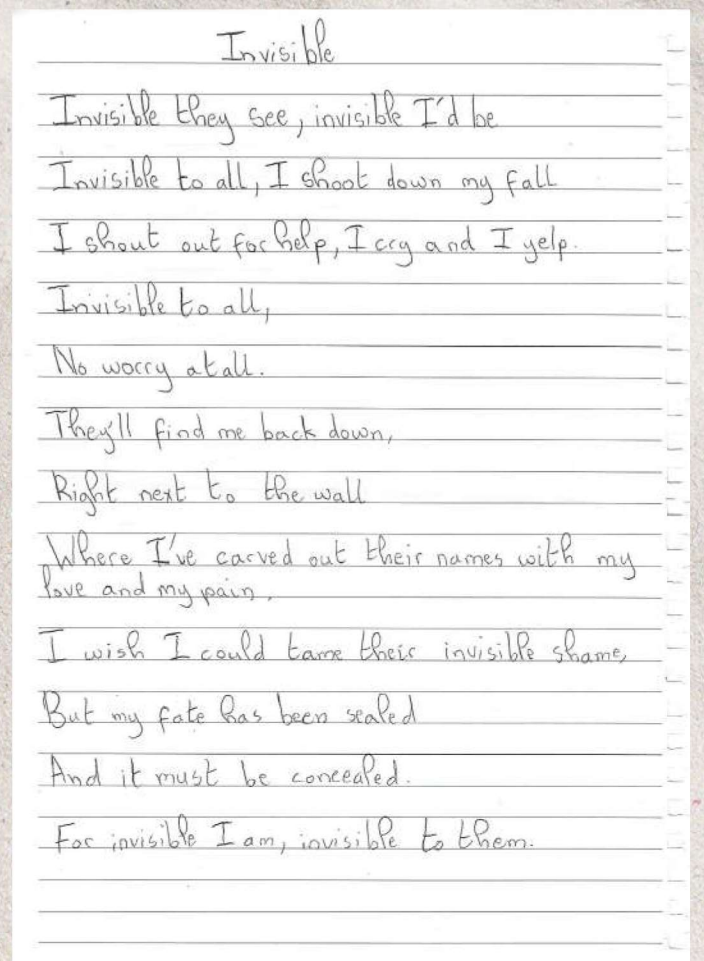 Invisible
Invisible they see, invisible I'd be
Invisible to all, I shoot down my fall
I shout out for help, I cry and I yelp.
Invisible to all,
No worry at all.
They'll find me back down,
Right next to the wall
Where I've carved out their names with my
love and my pain.
I wish I could tame their invisible shame,
But my fate has been sealed
And it must be concealed.
For invisible I am, invisible to them.